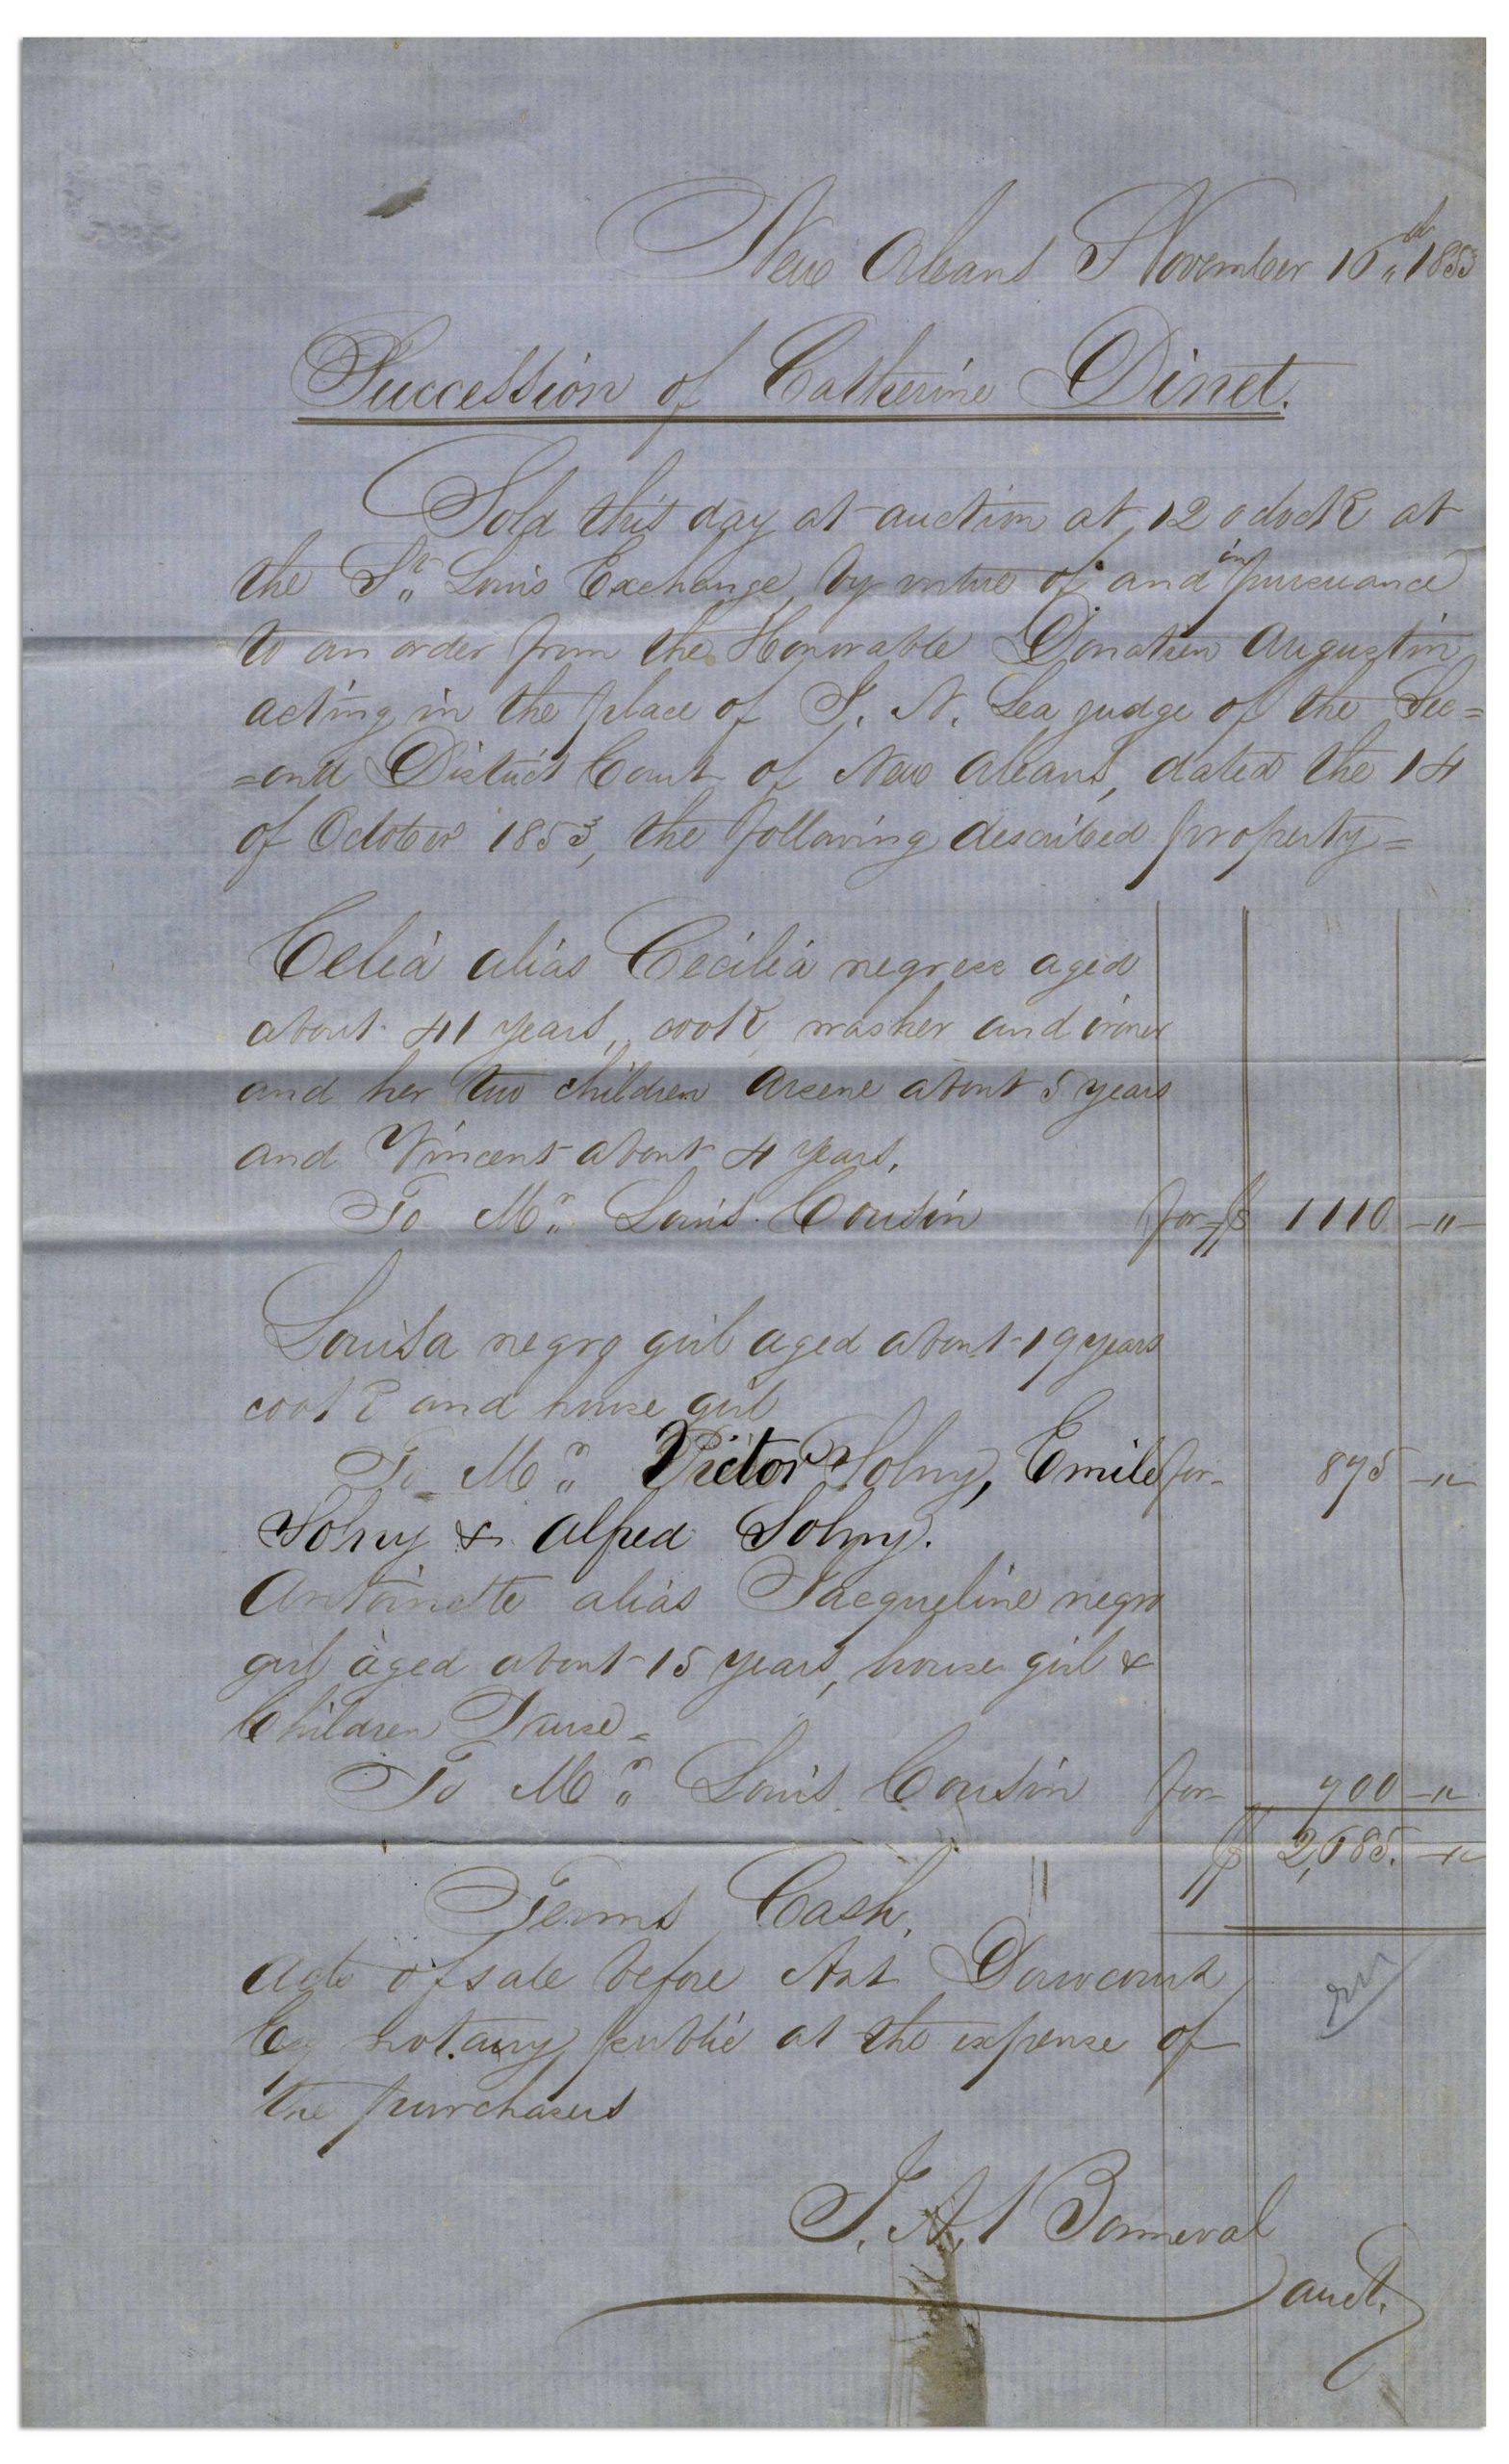 New Orleans November 16th 1853
Succession of Catherine Dinet.
Sold this day at auction at 12 o clock at
the St. Louis Exchange, by virtue of and in pursuance
to an order from the Honorable Donatien Augustin
acting in the place of J. N. Lea judge of the Sec=
=ond District Court of New Orleans, dated the 14
of October 1853, the following described property=
Celia alias Cecilia negress aged
about 41 years, cook, washer and ironer
and her two children Arsene about 5 years
and Vincent about 4 years,
To Mr. Louis Cousin for $ 1110 -"-
Louisa negro girl aged about 19 years
cook and house girl
To Mr. Victor Solny, Emile for 875 -"-
Solny & Alfred Solny.
Antoinette alias Jacqueline negro
girl aged about 15 years, house girl &
Children Nurse=
To Mr. Louis Cousin for 700 -"-
$ 2,685. -"-
Terms Cash,
Acts of sale before Ant Doriocourt
Esq notary public at the expense of
the purchasers
J. A. Bonneval
auct.